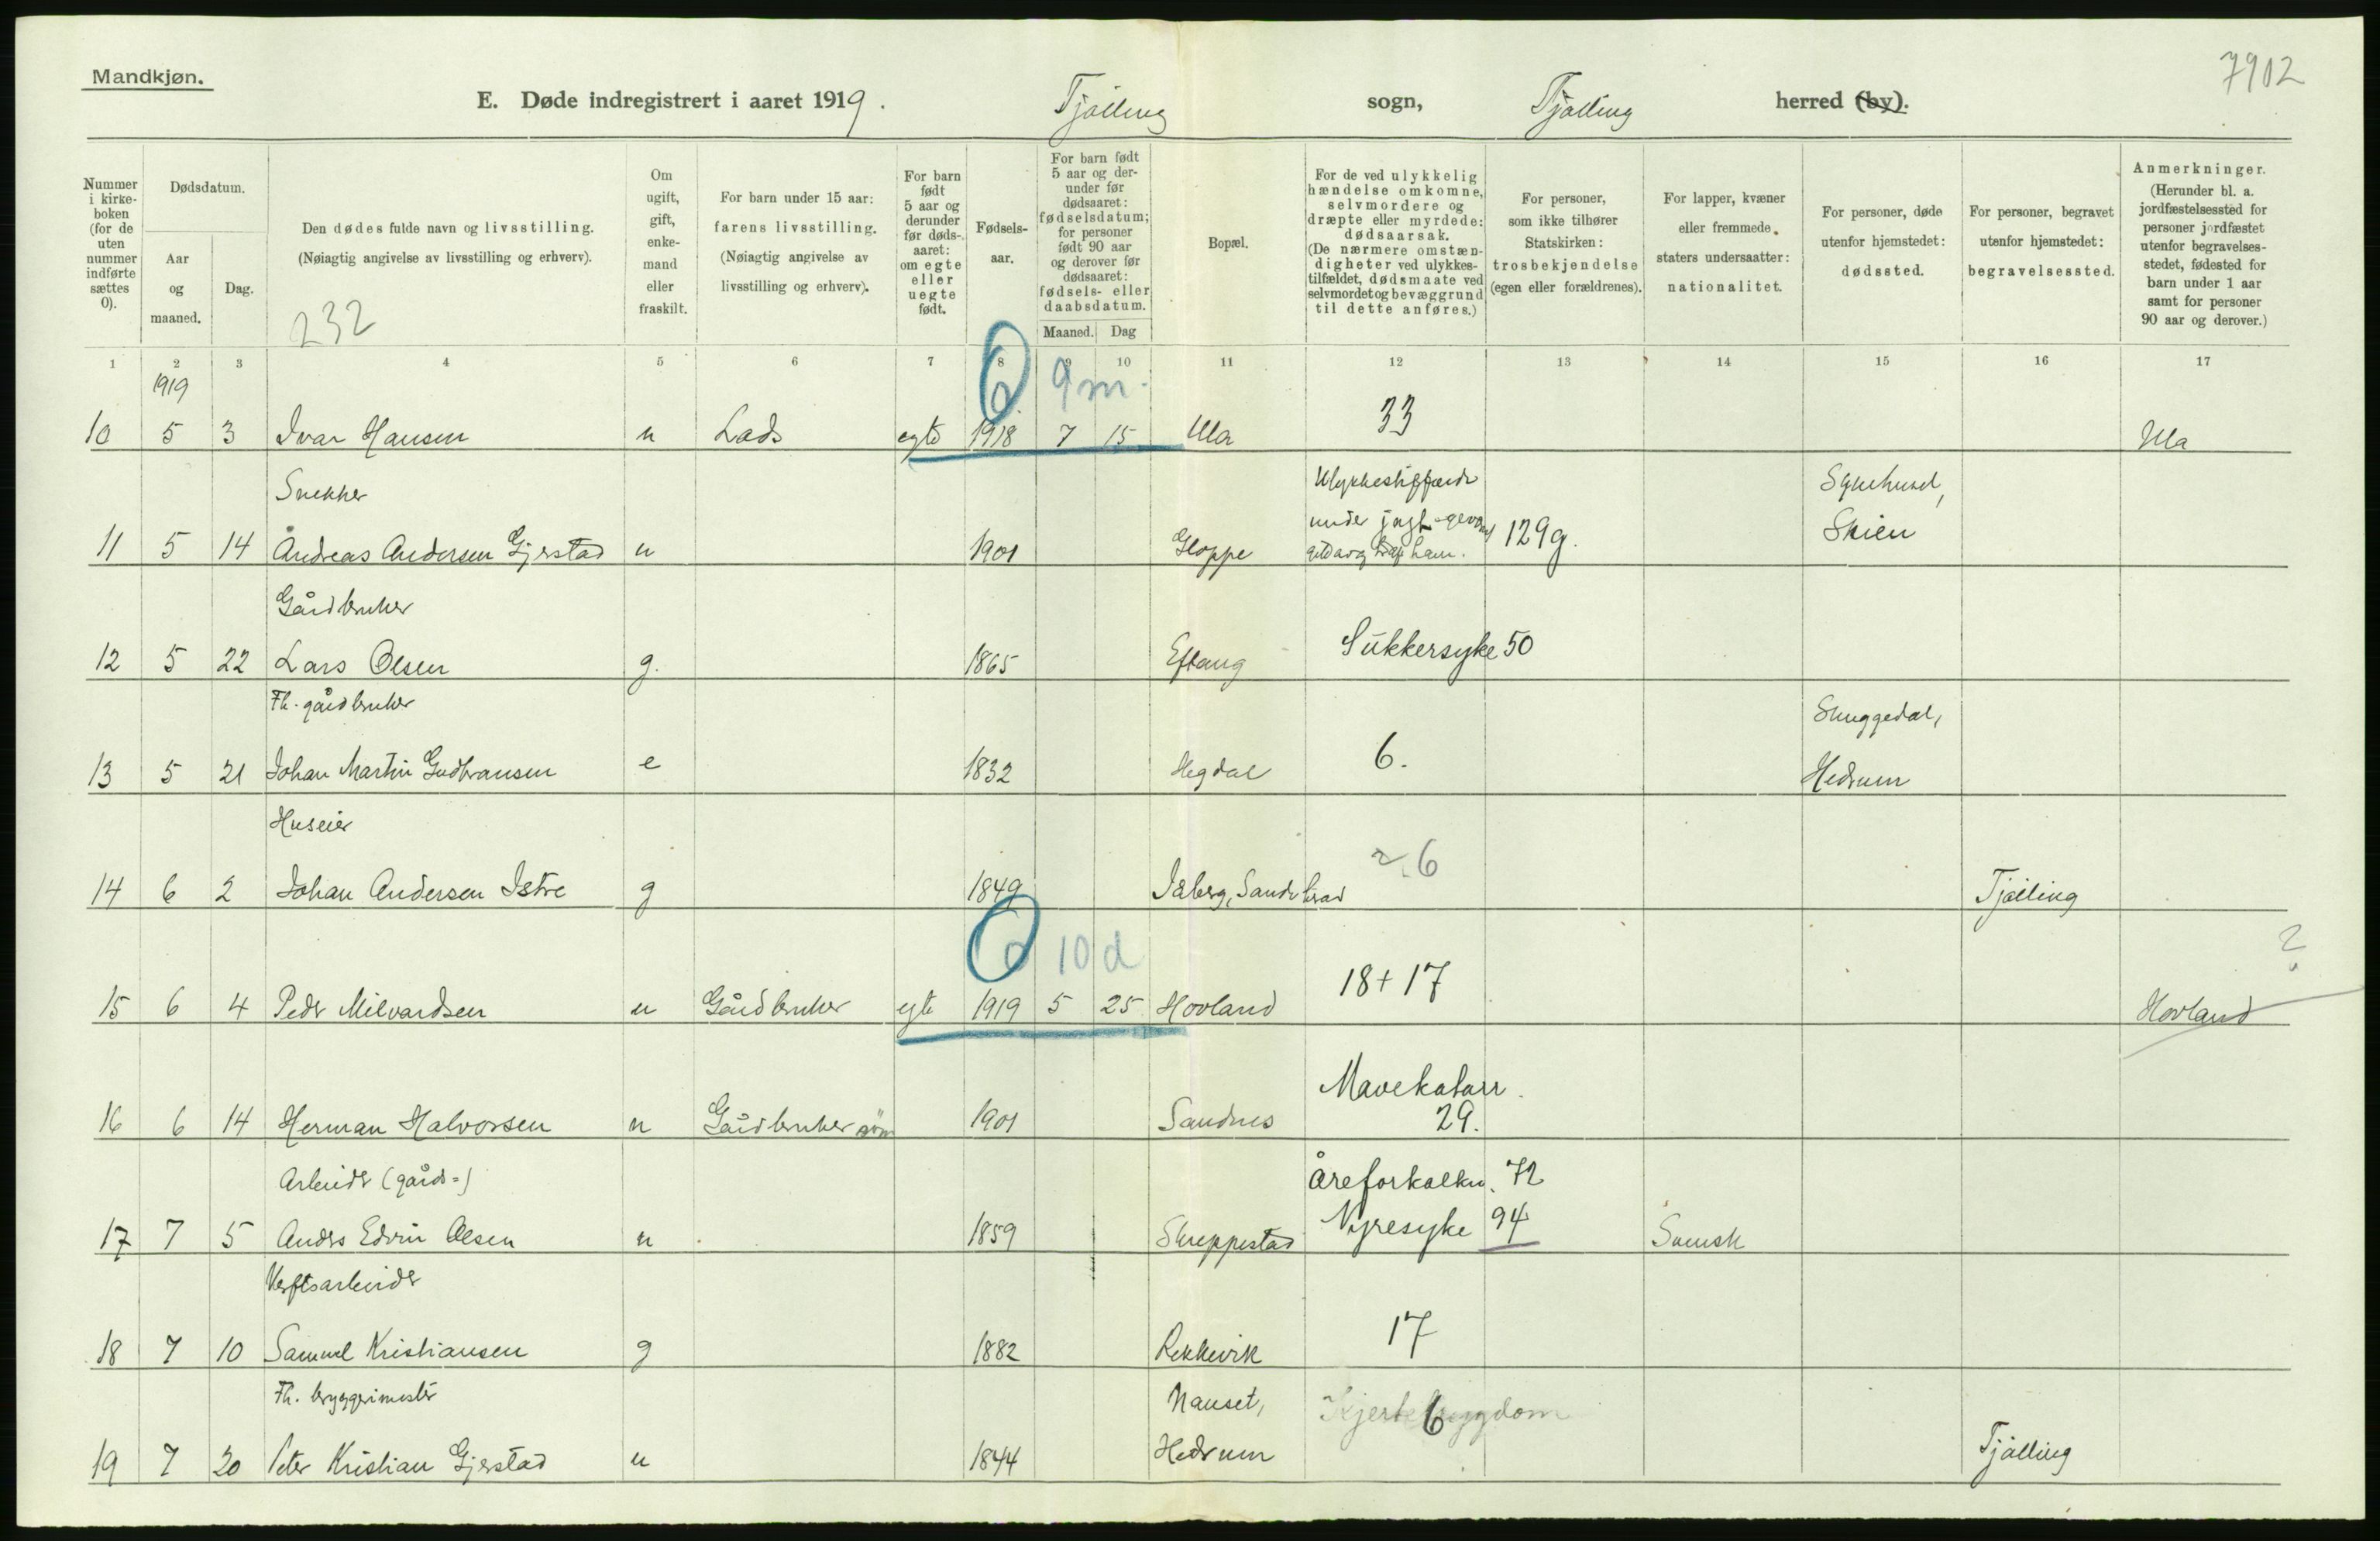 Mandkjøn.
7902
E. Døde indregistrert i aaret 1919. Tjølling sogn, Tjølling herred (by).
Nummer i kirke-boken (for de uten nummer indførte sættes 0).
Dødsdatum.
Aar og maaned.
Dag.
Den dødes fulde navn og livsstilling.
(Nøiagtig angivelse av livsstilling og erhverv).
232
Om ugift, gift, enke-mand eller fraskilt.
For barn under 15 aar: farens livsstilling.
(Nøiagtig angivelse av livsstilling og erhverv).
For barn født 5 aar og derunder før døds-aaret: om egte eller uegte født.
Fødsels-aar.
For barn født 5 aar og der-under før dødsaaret: fødselsdatum; for personer født 90 aar og derover før dødsaaret: fødsels- eller daabsdatum.
Maaned. Dag
Bopæl.
For de ved ulykkelig hændelse omkomne, selvmordere og dræpte eller myrdede: dødsaarsak.
(De nærmere omstæn-digheter ved ulykkes-tilfældet, dødsmaate ved selvmordet og bevæggrund til dette anføres.)
For personer, som ikke tilhører Statskirken: trosbekjendelse (egen eller forældrenes).
For lapper, kvæner eller fremmede staters undersaatter: nationalitet.
For personer, døde utenfor hjemstedet: dødssted.
For personer, begravet utenfor hjemstedet: begravelsessted.
Anmerkninger.
(Herunder bl. a. jordfæstelsessted for personer jordfæstet utenfor begravelses-stedet, fødested for barn under 1 aar samt for personer 90 aar og derover.)
1 2 3 4 5 6 7 8 9 10 11 12 13 14 15 16 17
1919
9 m.
10 5 3 Ivar Hansen u Lods egte 1918 7 15 Ula 33 Ula
Snekker
Sykehuset,
under jagt
11 5 14 Andreas Andersen Gjerstad u 1901 Gloppe ham. 129g. Skien
Gårdbruker
12 5 22 Lars Olsen g. 1865 Eftang Sukkersyke 50
Fh. gårdbruker
Skuggedal,
13 5 21 Johan Martin Gudbransen e 1832 Hegdal 6. Hedrum
Huseier
14 6 2 Johan Andersen Istre g 1849 Isberg, Sandeherad 6 Tjølling
10 d
?
15 6 4 Peder Milvardsen u Gårdbruker egte 1919 5 25 Hovland 18 + 17 Hovland
Mavekatarr.
16 6 14 Herman Halvorsen u Gårdbruker søn 1901 Sandnes 29.
Arbeider (gårds-)
Åreforkalkn. 72
17 7 5 Anders Edvin Olsen u 1859 Skreppestad Nyresyke 94 Svensk
Verftsarbeider
18 7 10 Samuel Kristiansen g 1882 Rekkevik 17
Fh. bryggerimester
Nanset,
Hjertesygdom 6
19 7 20 Peter Kristian Gjerstad u 1844 Hedrum Tjølling